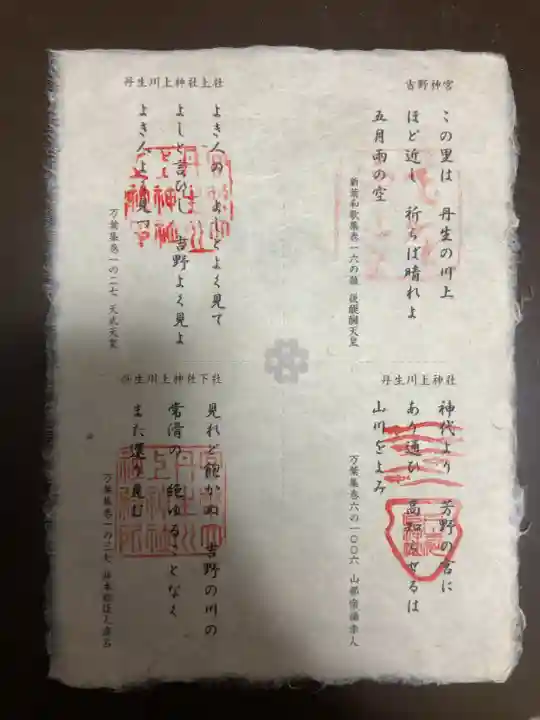 吉野神宮
この里は 丹生の川上
ほど近し 祈らば晴れよ
五月雨の空
新葉和歌集巻一六の雑 後醍醐天皇
丹生川上神社上社
よき人の よしとよく見て
よしと言ひし 吉野よく見よ
よき人よく見つ
万葉集巻一の二七 天武天皇
丹生川上神社
神代より 芳野の宮に
あり通ひ 高知らせるは
山川をよみ
万葉集巻六の一〇〇六 山部宿禰赤人
丹生川上神社下社
見れど飽かぬ 吉野の川の
常滑の 絶ゆることなく
また還り見む
万葉集巻一の三七 柿本朝臣人麿